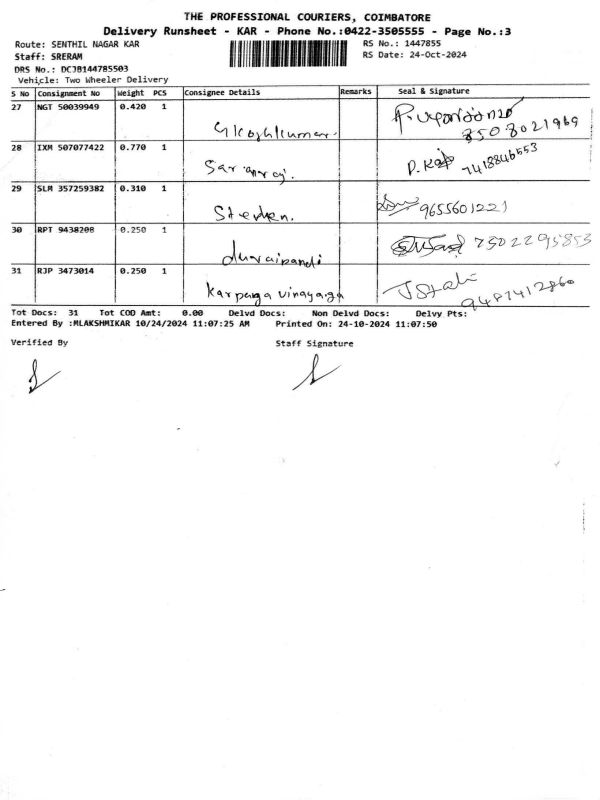 THE PROFESSIONAL COURIERS, COIMBATORE
Delivery Runsheet - KAR - Phone No.:0422-3505555 - Page No.:3
Route: SENTHIL NAGAR KAR RS No.: 1447855
Staff: SRERAM RS Date: 24-Oct-2024
DRS No.: DCJB144785503
Vehicle: Two Wheeler Delivery
S No Consignment No Weight PCS Consignee Details Remarks Seal & Signature
27 NGT 50039949 0.420 1
8508021969
28 IXM 507077422 0.770 1
7418846553
29 SLM 357259382 0.310 1
Stephen. 9655601221
30 RPT 9438208 0.250 1
duraipandi 7502295853
31 RJP 3473014 0.250 1
Karpaga vinayaga 9487412860
Tot Docs: 31 Tot COD Amt: 0.00 Delvd Docs: Non Delvd Docs: Delvy Pts:
Entered By :MLAKSHMIKAR 10/24/2024 11:07:25 AM Printed On: 24-10-2024 11:07:50
Verified By Staff Signature